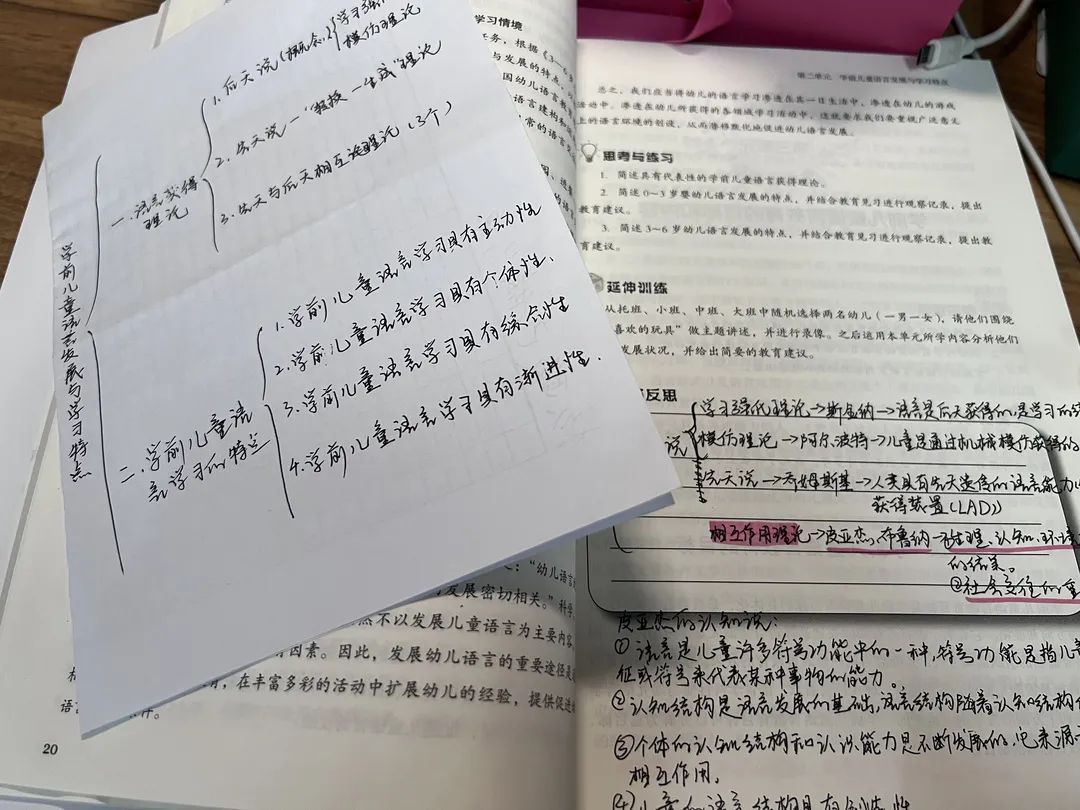 学前儿童语言发展与学习特点
一、语言获得理论
1. 后天说(概念)
学习强化
模仿理论
2. 先天说—"教技—生成"理论
3. 先天与后天相互论理论(3个)
二、学前儿童语言学习的特点
1. 学前儿童语言学习具有主动性
2. 学前儿童语言学习具有个体性、
3. 学前儿童语言学习具有综合性
4. 学前儿童语言学习具有渐进性.
学习情境
任务,根据《3~6
与发展的特点
国幼儿语言
语言建构和
常的语言
:"幼儿语言的
发展密切相关。"科学
然不以发展儿童语言为主要内容
因素。因此,发展幼儿语言的重要途径是
,在丰富多彩的活动中扩展幼儿的经验,提供促进
语
件。
20
第二单元 学前儿童语言发展与学习特点
总之,我们应当将幼儿的语言学习渗透在其一日生活中,渗透在幼儿的游戏
活动中,渗透在幼儿所获得的各领域学习活动中,这就要求我们要重视广泛意义
上的语言环境的创设,从而潜移默化地促进幼儿语言发展。
思考与练习
1. 简述具有代表性的学前儿童语言获得理论。
2. 简述 0~3 岁婴幼儿语言发展的特点,并结合教育见习进行观察记录,提出
教育建议。
3. 简述 3~6 岁幼儿语言发展的特点,并结合教育见习进行观察记录,提出教
育建议。
延伸训练
从托班、小班、中班、大班中随机选择两名幼儿(一男一女),请他们围绕
喜欢的玩具"做主题讲述,并进行录像。之后运用本单元所学内容分析他们
发展状况,并给出简要的教育建议。
反思
说
学习强化理论→斯金纳→语言是后天获得的,是学习的
模仿理论→阿尔波特→儿童是通过机械模仿获得的
先天说→乔姆斯基→人类具有先天遗传的语言能力
获得装置(LAD))
相互作用理论→皮亚杰、布鲁纳→①生理、认知、环境
的结果。
②社会交往的重
皮亚杰的认知说:
①语言是儿童许多符号功能中的一种,符号功能是指儿童
征或符号来代表某种事物的能力。
②认知结构是语言发展的基础,语言结构随着认知结构
③个体的认知结构和认识能力是不断发展的,它来源
相互作用,
④儿童的语言结构具有创造性